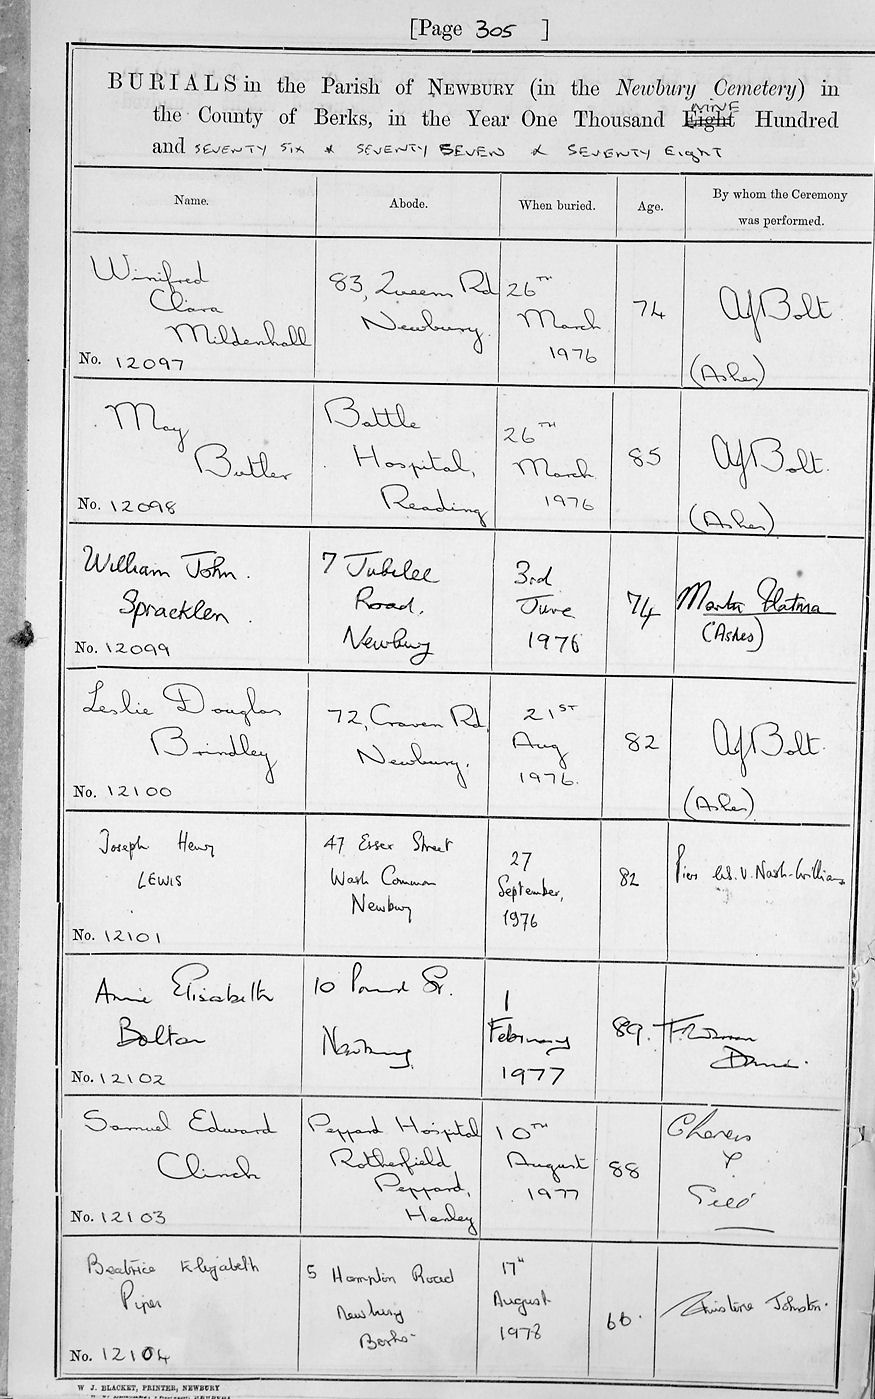 [Page 305 ]
BURIALS in the Parish of NEWBURY (in the Newbury Cemetery) in
NINE
the County of Berks, in the Year One Thousand Eight Hundred
and SEVENTY SIX & SEVENTY SEVEN & SEVENTY EIGHT
Name. Abode. When buried. Age. By whom the Ceremony was performed.
Winifred
Clara
Mildenhall
No. 12097
83, Queens Rd
Newbury.
26TH
March
1976
74
AJ Bolt
(Ashes)
May
Butler
No. 12098
Battle
Hospital,
Reading
26TH
March
1976
85
AJ Bolt.
(Ashes)
William John.
Spracklen.
No. 12099
7 Jubilee
Road,
Newbury
3rd
June
1976
74
(Ashes)
Leslie Douglas
Brindley
No. 12100
72, Craven Rd,
Newbury.
21ST
Aug
1976.
82
AJ Bolt.
(Ashes)
Joseph Henry
LEWIS
No. 12101
47 Essex Street
Wash Common
Newbury
27
September,
1976
82
Piers W.V. Nash-Williams
Annie Elisabeth
Bolton
No. 12102
10 Pound St.
Newbury.
1
February
1977
89.
Samuel Edward
Clinch
No. 12103
Peppard Hospital
Rotherfield
Peppard,
Henley
10TH
August
1977
88
Beatrice Elizabeth
Piper
No. 12104
5 Hampton Road
Newbury
Berks.
17th
August
1978
66.
Christine Johnston.
W. J. BLACKET, PRINTER, NEWBURY